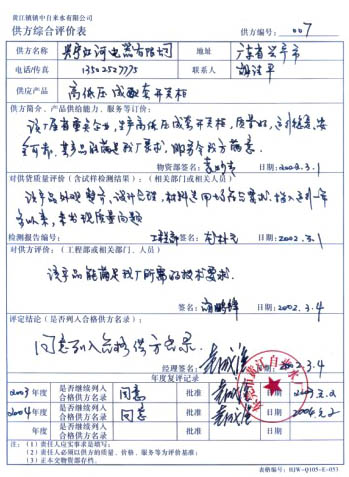 黄江镇镇中自来水有限公司
供方综合评价表 供方编号: 007
供方名称 兴宁红河电器有限公司 地址 广东省兴宁市
电话/传真 13502527775 联系人
供应产品 高低压成套开关柜
供方简介、产品供给能力、服务等订价:
该厂为省重点企业,生产高低压成套开关柜,质量好,
物资部签名: 日期:2002.3.1
对供货质量评价(含试样检测结果):(相关部门或相关人员)
该产品外观整齐,设计合理,材料选用均符合要求,投入运行一年
多以来,未发现质量问题
检测报告编号: 工程部 日期:2002.3.1
对供方评价:(工程部或相关部门、人员)
该产品能满足我厂所需的技术要求.
签名: 日期:2002.3.4
评定结论(是否列入合格供方名录):
同意列入合格供方名录.
经理签名: 2002.3.4
年度复评记录
2003年度 是否继续列入合格供方名录 同意 批准 2003.3.2
2004年度 是否继续列入合格供方名录 同意 批准 2004.2.2
年度 是否继续列入合格供方名录 批准
注:(1)责任人应实事求是填写。
(2)责任人必须以供方的质量、价格、服务等为评价基准;
(3)正本交物资部存档。
表格编号:HJW-Q105-E-053